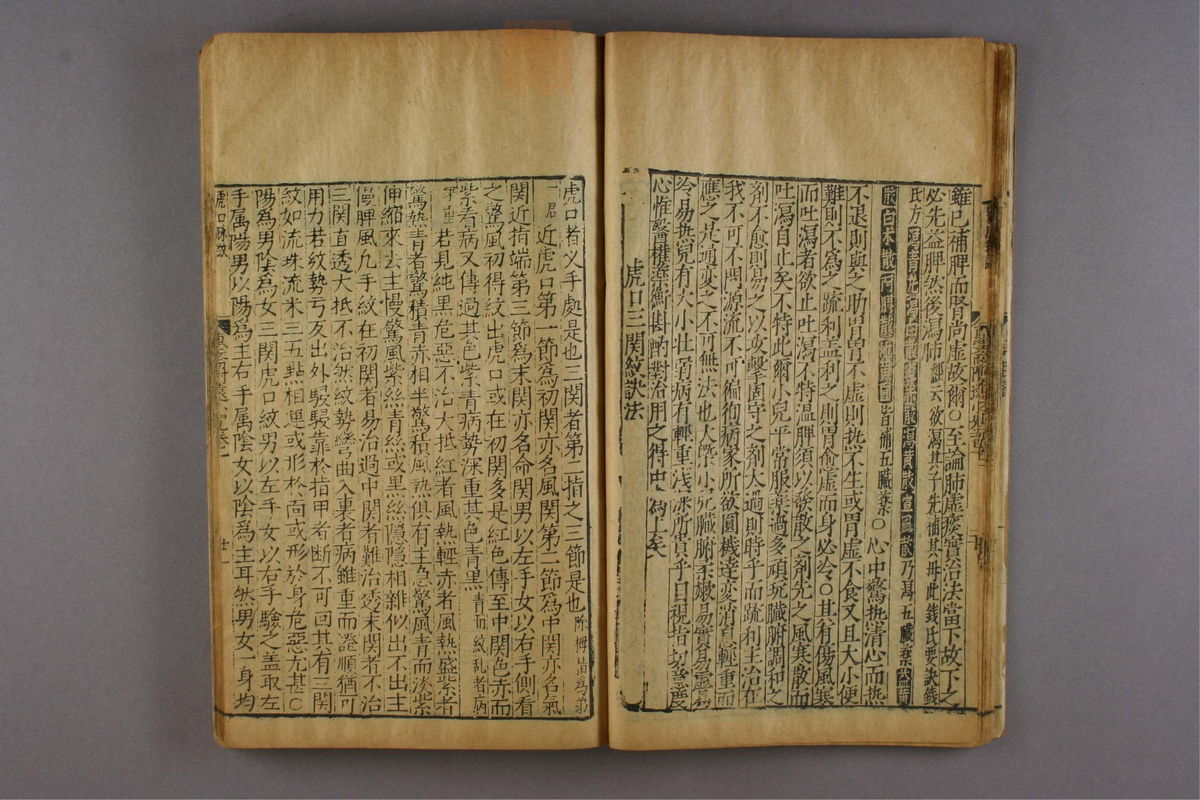 雖已補脾而腎尚虛故爾○至論肺虛痰實治法當下故下之
必先益脾然後瀉肺經云欲瀉其子先補其母此錢氏要訣錢
氏方瀉青丸導赤散瀉黃散瀉白散乃瀉五臟藥
散白朮散阿膠散地黃圓皆補五臟藥○心中驚熱清心而熱
不退則與之助胃胃不虛則熱不生或胃虛不食又且大小便
難則不爲之疏利盖利之則胃愈虛而身必冷○其有傷風寒
而吐瀉者欲止吐瀉不特温脾須以發散之剤先之風寒散而
吐瀉自止矣不特此爾小兒平常服藥過多頑玩臟腑調和之
剤不愈則易之以攻擊固守之剤太過則時乎而疏利主治在
我不可不問源流不可徇病家所欲圓機達變消息輕重而
應之其通變之不可無法也大槩小兒臟腑柔嫩易實易虛易
冷易熱兒有大小壮弱病有輕重浅深所貴乎目視指切意度
心惟醫權藥衡斟酌對治用之得中爲上矣
虎口三関紋訣法
虎口者乂手處是也三関者第二指之三節是也除拇指爲第
一君近虎口第一節爲初関亦名風関第二節爲中関亦名氣
関近指端第三節爲末関亦名命関男以左手女以右手側看
之盖風初得紋出虎口或在初関多是紅色傳至中関色赤而
紫看病又傳過其色紫青病勢深重其色青黒青而紋乱者病
深重若見純黒危惡不治大抵紅者風熱輕赤者風熱盛紫者
驚熱青者驚積青赤相半驚積風熱俱有主急驚風青而淡紫
伸縮來去主慢驚風紫絲青絲或黒絲隱隱相雜似出不出主
慢脾風凢手紋在初関者易治過中関者難治透末関者不治
三関直透大抵不治然紋勢彎曲入裏者病雖重而證順猶可
用力若紋勢弓反出外駸駸靠於指甲者断不可回其有三関
紋如流珠流米三五點相連或形於面或形於身危惡尤甚○
陽爲男陰爲女三関虎口紋男以左手女以右手驗之盖取左
手属陽男以陽爲主右手属陰女以陰爲主耳然男女一身均